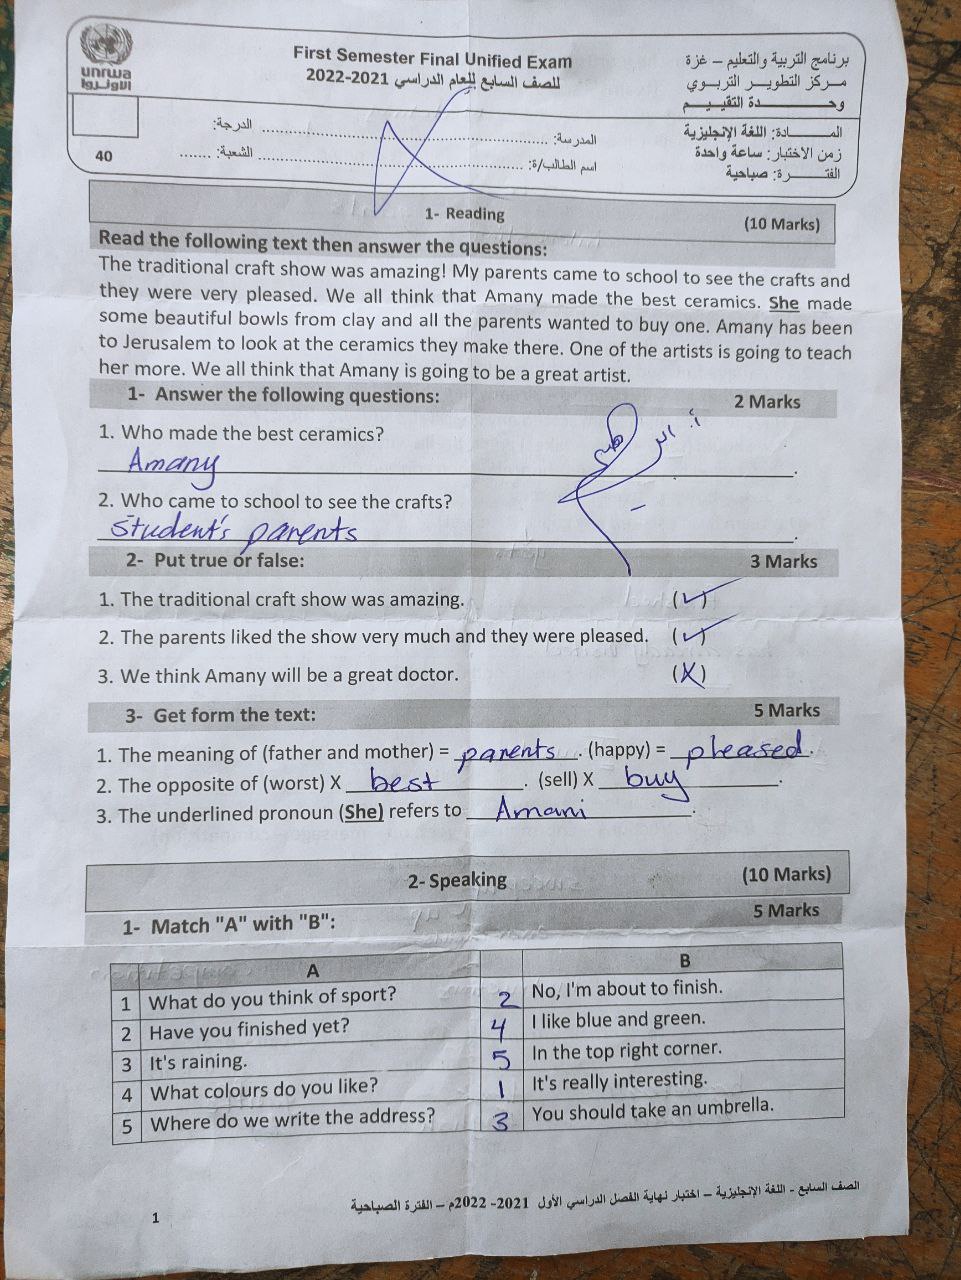 unrwa
الأونروا
First Semester Final Unified Exam
للصف السابع للعام الدراسي 2021-2022
برنامج التربية والتعليم – غزة
مركز التطوير التربوي
وحدة التقييم
المادة: اللغة الإنجليزية
زمن الاختبار: ساعة واحدة
الفترة: صباحية
المدرسة: ........................ الدرجة: ........................
اسم الطالب/ة: ........................ الشعبة: .......
40
1- Reading (10 Marks)
Read the following text then answer the questions:
The traditional craft show was amazing! My parents came to school to see the crafts and
they were very pleased. We all think that Amany made the best ceramics. She made
some beautiful bowls from clay and all the parents wanted to buy one. Amany has been
to Jerusalem to look at the ceramics they make there. One of the artists is going to teach
her more. We all think that Amany is going to be a great artist.
1- Answer the following questions: 2 Marks
1. Who made the best ceramics?
Amany
2. Who came to school to see the crafts?
student's parents
2- Put true or false: 3 Marks
1. The traditional craft show was amazing. (✓)
2. The parents liked the show very much and they were pleased. (✓)
3. We think Amany will be a great doctor. (X)
3- Get form the text: 5 Marks
1. The meaning of (father and mother) = parents. (happy) = pleased.
2. The opposite of (worst) X best. (sell) X buy.
3. The underlined pronoun (She) refers to Amani.
2- Speaking (10 Marks)
1- Match "A" with "B": 5 Marks
A B
1 What do you think of sport? 2 No, I'm about to finish.
2 Have you finished yet? 4 I like blue and green.
3 It's raining. 5 In the top right corner.
4 What colours do you like? 1 It's really interesting.
5 Where do we write the address? 3 You should take an umbrella.
الصف السابع - اللغة الإنجليزية – اختبار نهاية الفصل الدراسي الأول 2021- 2022م – الفترة الصباحية
1